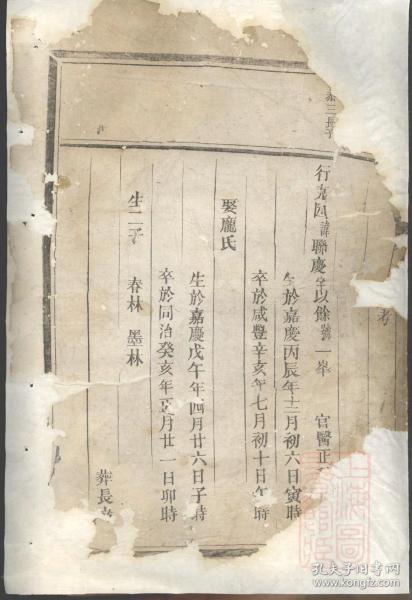 三長子
考
行克四諱聯慶字以餘號一峯 官醫正
生於嘉慶丙辰年十二月初六日寅時
卒於咸豐辛亥年七月初十日午時
娶龐氏
生於嘉慶戊午年四月廿六日子時
卒於同治癸亥年正月廿一日卯時
生二子 春林 墨林
葬長
孔夫子旧书网
book.kongfz.com